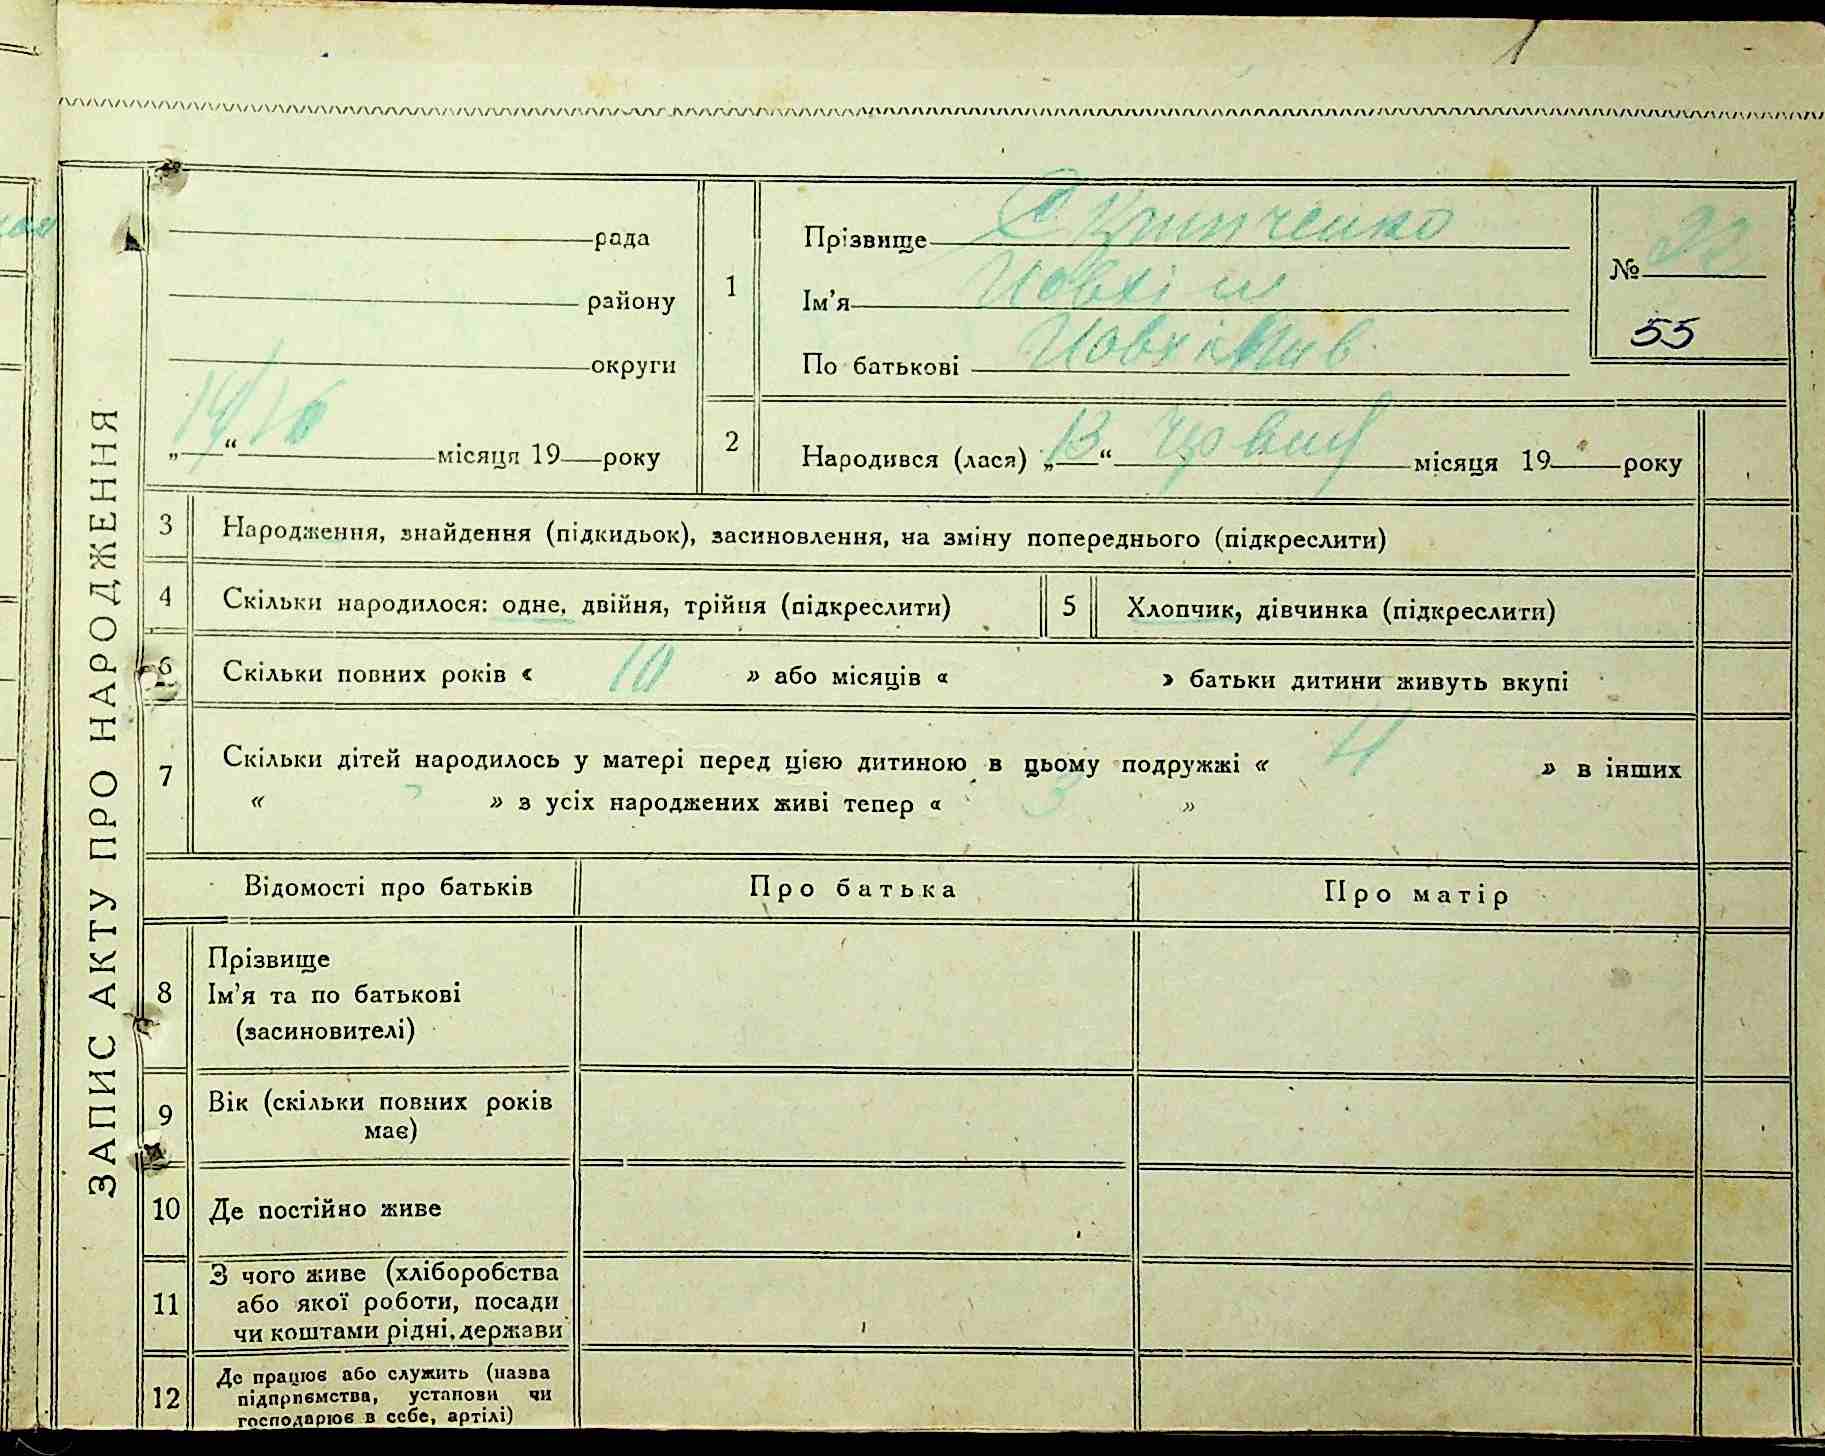 ЗАПИС АКТУ ПРО НАРОДЖЕННЯ
рада
району
округи
„14“ місяця 19 року
1
Прізвище
Ім'я
По батькові
№ 22
55
2
Народився (лася) „13“ червня місяця 19 року
3 Народження, знайдення (підкидьок), засиновлення, на зміну попереднього (підкреслити)
4 Скільки народилося: одне, двійня, трійня (підкреслити)
5 Хлопчик, дівчинка (підкреслити)
6 Скільки повних років « 10 » або місяців « » батьки дитини живуть вкупі
7 Скільки дітей народилось у матері перед цією дитиною в цьому подружжі « 4 » в інших
« » з усіх народжених живі тепер « 3 »
Відомості про батьків
Про батька
Про матір
8
Прізвище
Ім'я та по батькові
(засиновителі)
9
Вік (скільки повних років
має)
10 Де постійно живе
11
З чого живе (хліборобства
або якої роботи, посади
чи коштами рідні, держави
12
Де працює або служить (назва
підприємства, установи чи
господарює в себе, артілі)